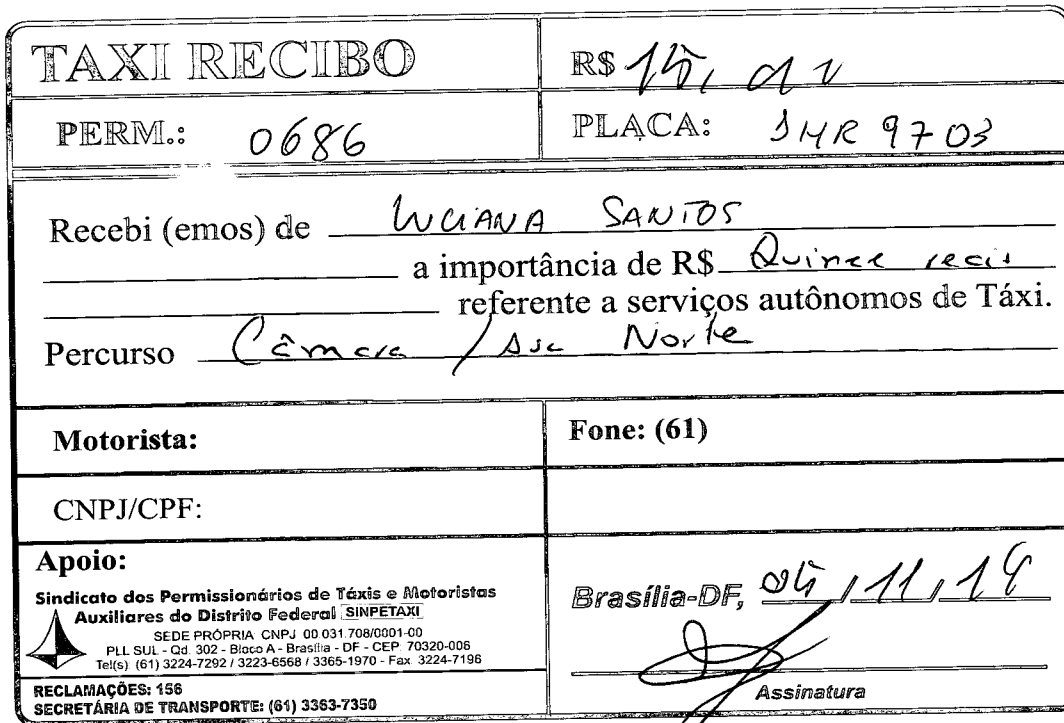 TAXI RECIBO
R$ 15,
PERM.: 0686
PLACA: JHR 9703
Recebi (emos) de LUCIANA SANTOS
a importância de R$ Quinze reais
referente a serviços autônomos de Táxi.
Percurso Câmara / Asa Norte
Motorista:
Fone: (61)
CNPJ/CPF:
Apoio:
Sindicato dos Permissionários de Táxis e Motoristas
Auxiliares do Distrito Federal SINPETAXI
SEDE PRÓPRIA CNPJ 00.031.708/0001-00
PLL SUL - Qd. 302 - Bloco A - Brasília - DF - CEP: 70320-006
Tel(s) (61) 3224-7292 / 3223-6568 / 3365-1970 - Fax 3224-7196
RECLAMAÇÕES: 156
SECRETÁRIA DE TRANSPORTE: (61) 3363-7350
Brasília-DF, 05 / 11 / 14
Assinatura